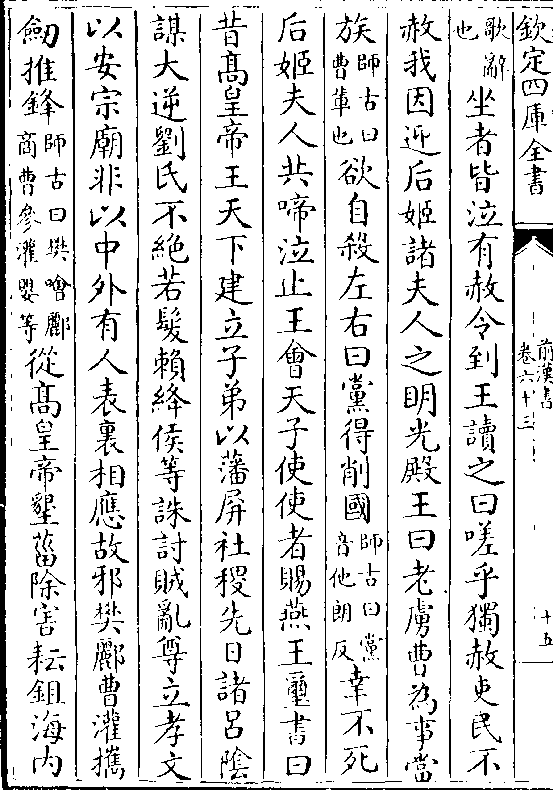 欽定四庫全書
前漢書
卷六十三
十五
歌辭
也
坐者皆泣有赦令到王讀之曰嗟乎獨赦吏民不
赦我因迎后姬諸夫人之明光殿王曰老虜曹為事當
族
師古曰
曹輩也
欲自殺左右曰黨得削國
師古曰黨
音他朗反
幸不死
后姬夫人共啼泣止王會天子使使者賜燕王璽書曰
昔髙皇帝王天下建立子弟以藩屏社稷先日諸吕隂
謀大逆劉氏不絶若髮賴絳侯等誅討賊亂尊立孝文
以安宗廟非以中外有人表裏相應故邪樊酈曹灌攜
劒推鋒
師古曰樊噲酈
商曹參灌嬰等
從髙皇帝墾菑除害耘鉏海内